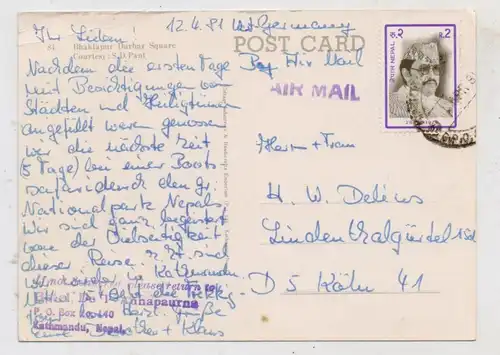 12.4.81 W-Germany
Ihr Lieben!
81 Bhaktapur Darbar Square
Courtesy: S.D. Pant
POST CARD
Nachdem die ersten Tage
mit Besichtigungen von
Städten und Heiligtümern
angefüllt waren genossen
wir die nächste Zeit
(5 Tage) bei einer Boots-
safari durch den gr.
Nationalpark Nepals.
Wir sind ganz begeistert
von der Vielseitigkeit
dieser Reise. z. Zt. sind
wir wieder in Katmandu
If not please return to
Hotel de l'Annapurna
P. O. Box No. 140
Kathmandu, Nepal.
Herzl. Grüße
Eure Dorothee + Klaus
By Air Mail
AIR MAIL
नेपाल NEPAL
रु. २ R. 2
Herrn + Frau
H. W. Delius
Lindenthalgürtel
D 5 Köln 41